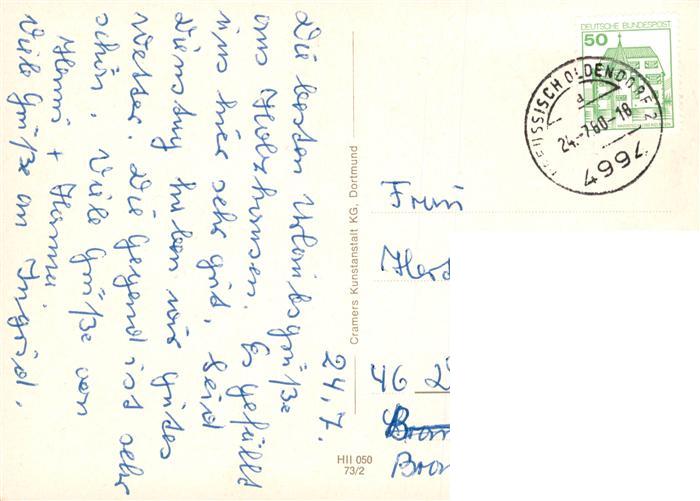 24.7.
Die besten Urlaubsgrüße
aus Holzhausen. Es gefällt
uns hier sehr gut. Seid
Dienstag haben wir gutes
Wetter. Die Gegend ist sehr
schön. Viele Grüße von
Hanni +
Viele Grüße an Ingrid.
Cramers Kunstanstalt KG, Dortmund
HII 050
73/2
DEUTSCHE BUNDESPOST
50
SISCH OLDENDORF 2
d
24.-7.80-18
7667
Frau
46